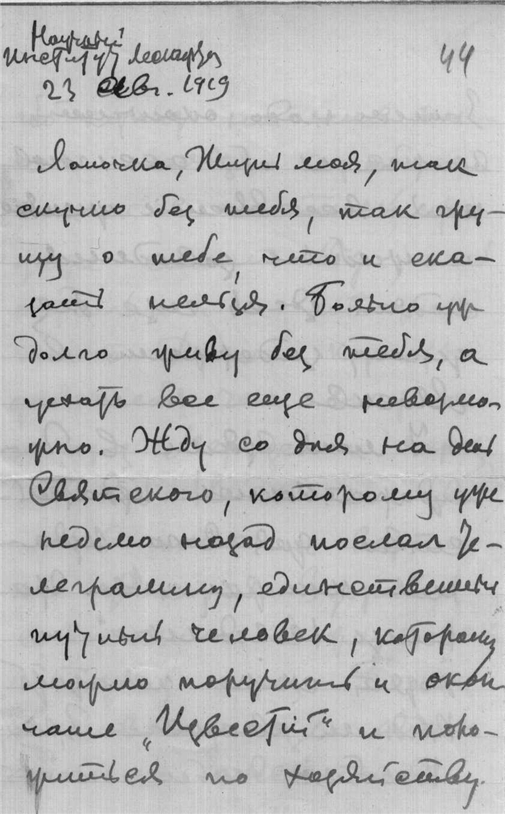 Научный
Институт Лесгафта
23 авг. 1919
44
Лапочка, Жизнь моя, так
скучно без тебя, так гру-
щу о тебе, что и ска-
зать нельзя. Больно уж
долго живу без тебя, а
уехать все еще невозмо-
жно. Жду со дня на день
Святского, которому уже
неделю назад послал те-
леграмму, единственный
нужный человек, которому
можно поручить и окон
чание „Известий" и
по хозяйству.